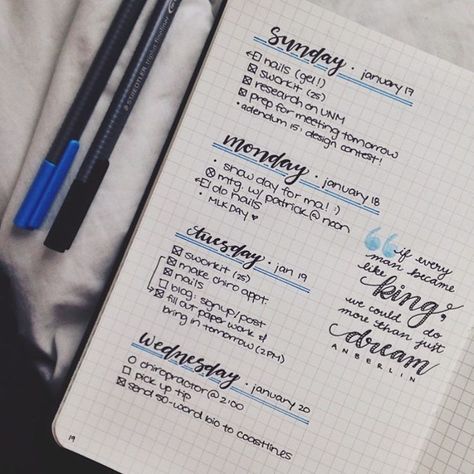 STAEDTLER triplus fineliner
Sunday . january 17
nails (gel!)
sworkit (25)
research on UNM
prep for meeting tomorrow
• adendum 15: design contest!
monday . january 18
• snow day for ma! :)
mtg. w/ patrick @ noon
do nails
• MLK Day ♥
tuesday . jan 19
sworkit (25)
make chiro appt.
nails
blog: signup/post
fill out paper work &
bring in tomorrow (2PM)
wednesday . january 20
chiropractor @ 2:00
pick up tip
send 50-word bio to coastlines
“if every
man became
like
king,
we could do
more than just
dream
ANBERLIN
19